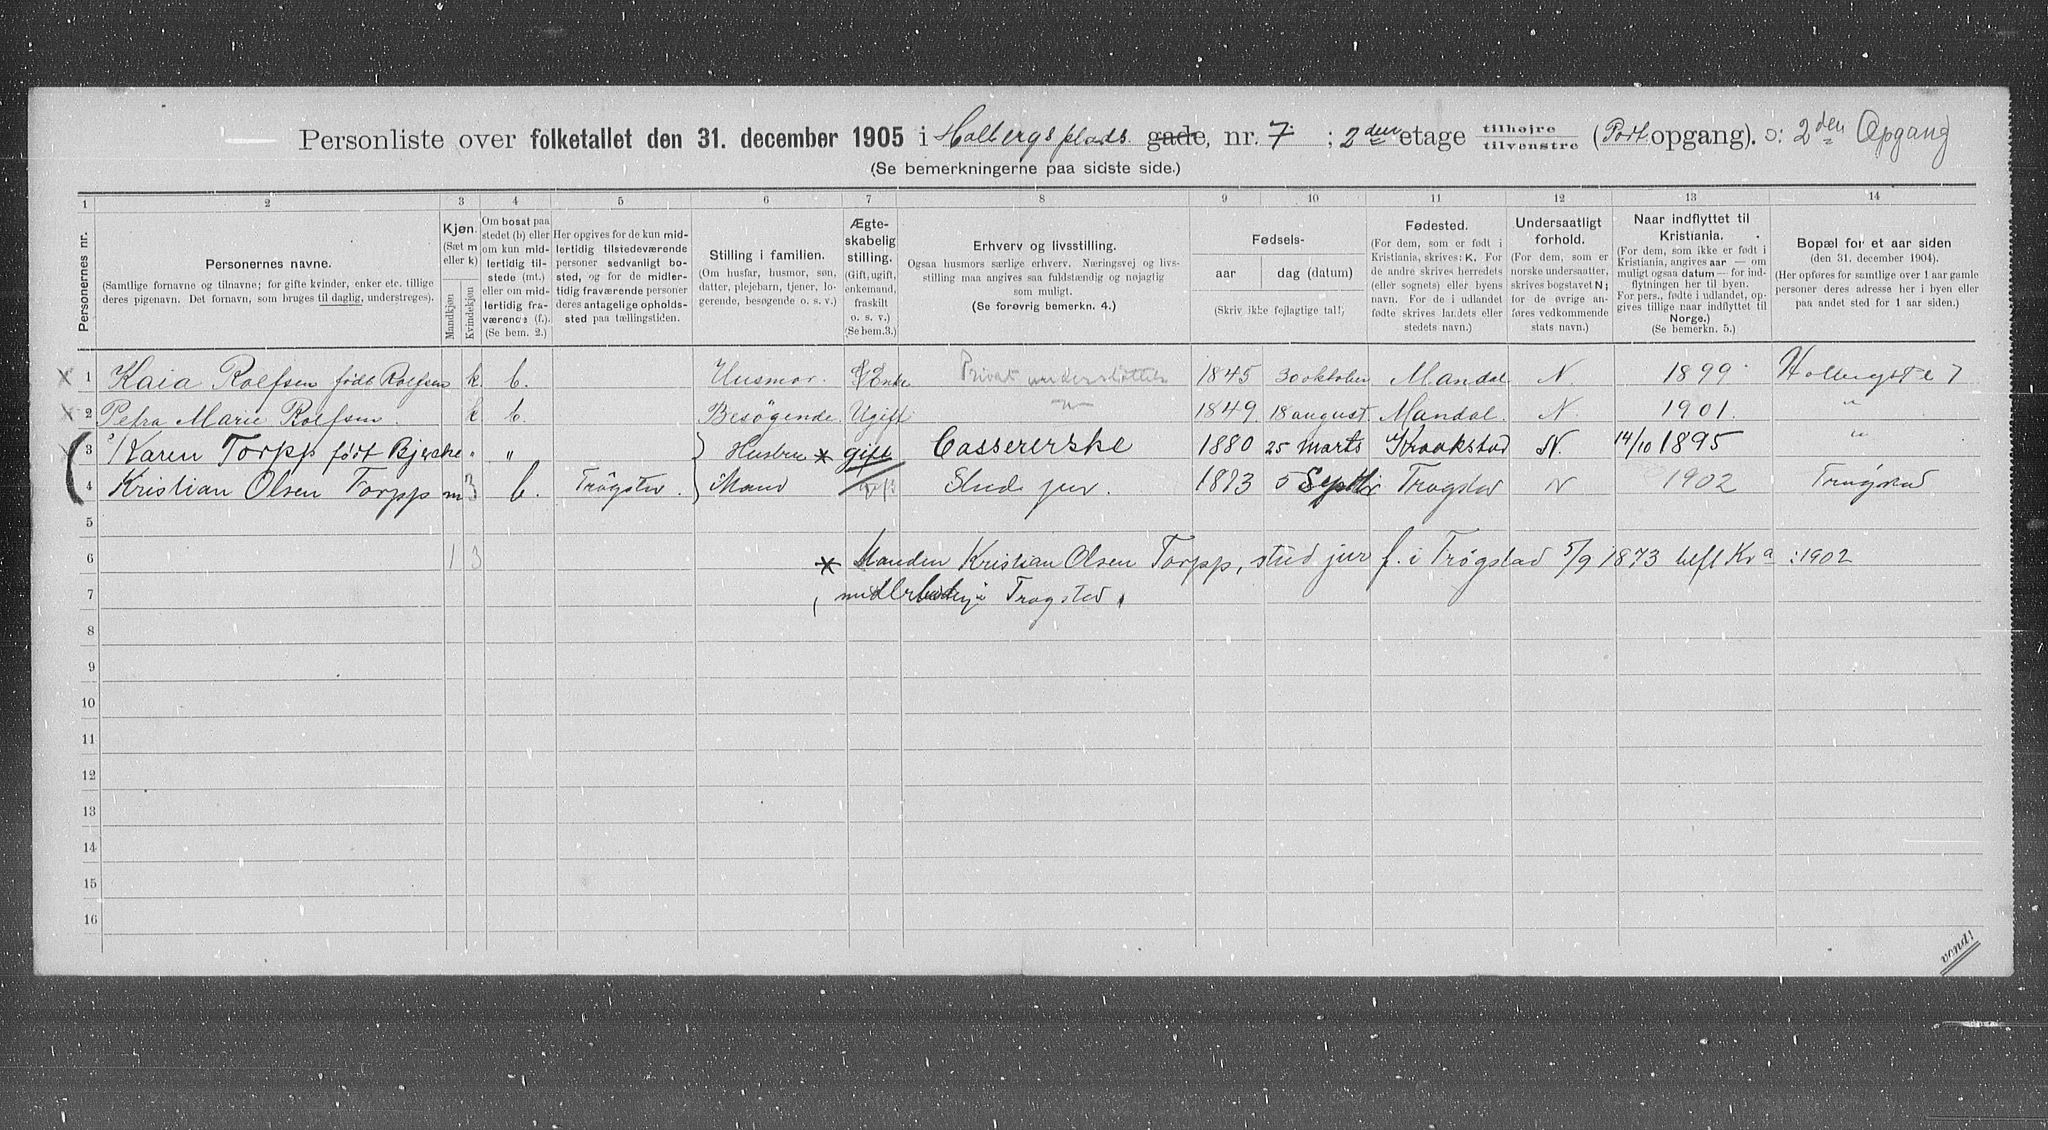 Personliste over folketallet den 31. december 1905 i Holbergs plads gade, nr. 7 ; 2den etage tilhøjre tilvenstre (Port opgang). ɔ: 2den Opgang
(Se bemerkningerne paa sidste side.)
1 2 3 4 5 6 7 8 9 10 11 12 13 14
Personernes nr.
Personernes navne.
(Samtlige fornavne og tilnavne; for gifte kvinder, enker etc. tillige
deres pigenavn. Det fornavn, som bruges til daglig, understreges).
Kjøn.
(Sæt m
eller k)
Mandkjøn
Kvindekjøn
Om bosat paa
stedet (b) eller
om kun mid-
lertidig til-
stede (mt.)
eller om mid-
lertidig fra-
værende (f.).
(Se bem. 2.)
Her opgives for de kun mid-
lertidig tilstedeværende
personer sedvanlig bo-
sted, og for de midler-
tidig fraværende personer
deres antagelige opholds-
sted paa tællingstiden.
Stilling i familien.
(Om husfar, husmor, søn,
datter, plejebarn, tjener, lo-
gerende, besøgende o. s. v.)
Ægte-
skabelig
stilling.
(Gift, ugift,
enkemand,
fraskilt
o. s. v.)
(Se bem. 3.)
Erhverv og livsstilling.
Ogsaa husmors særlige erhverv. Næringsvej og livs-
stilling maa angives saa fuldstændig og nøjagtig
som muligt.
(Se forøvrig bemerkn. 4.)
Fødsels-
aar
dag (datum)
(Skriv ikke fejlagtige tal!)
Fødested.
(For dem, som er født i
Kristiania, skrives: K. For
de andre skrives herredets
(eller sognets) eller byens
navn. For de i udlandet
fødte skrives landets eller
stedets navn.)
Undersaatligt
forhold.
(For dem, som er
norske undersaatter,
skrives bogstavet N;
for de øvrige an-
føres vedkommende
stats navn.)
Naar indflyttet til
Kristiania.
(For dem, som ikke er født i
Kristiania, angives aar — om
muligt ogsaa datum — for ind-
flytningen her til byen.
For pers., fødte i udlandet, op-
gives tillige naar indflyttet til
Norge.)
(Se bemerkn. 5.)
Bopæl for et aar siden
(den 31. december 1904).
(Her opføres for samtlige over 1 aar gamle
personer deres adresse her i byen eller
paa andet sted for 1 aar siden.)
x 1 Kaia Rolfsen født Rolfsen k b. Husmor. Enke Privat understøttelse 1845 30 oktober Mandal N 1899 7
x 2 Petra Marie Rolfsen. k. b. Besøgende. Ugift " 1849. 18 august Mandal. N 1901. "
3 Karen Torpp født Bjerke " " Hustru * gift Cassererske 1880 25 marts Kraakstad N. 14/10 1895 "
4 Kristian Olsen Torpp m 3 b. Trøgstad. Mand gift Stud jur. 1873 5 Septbr Trøgstad N 1902 Trøgstad
5
6 1 3 * Manden Kristian Olsen Torpp, stud jur f. i Trøgstad 5/9 1873 tilfl. Kra : 1902
7 Trøgstad.
8
9
10
11
12
13
14
15
16
vend!